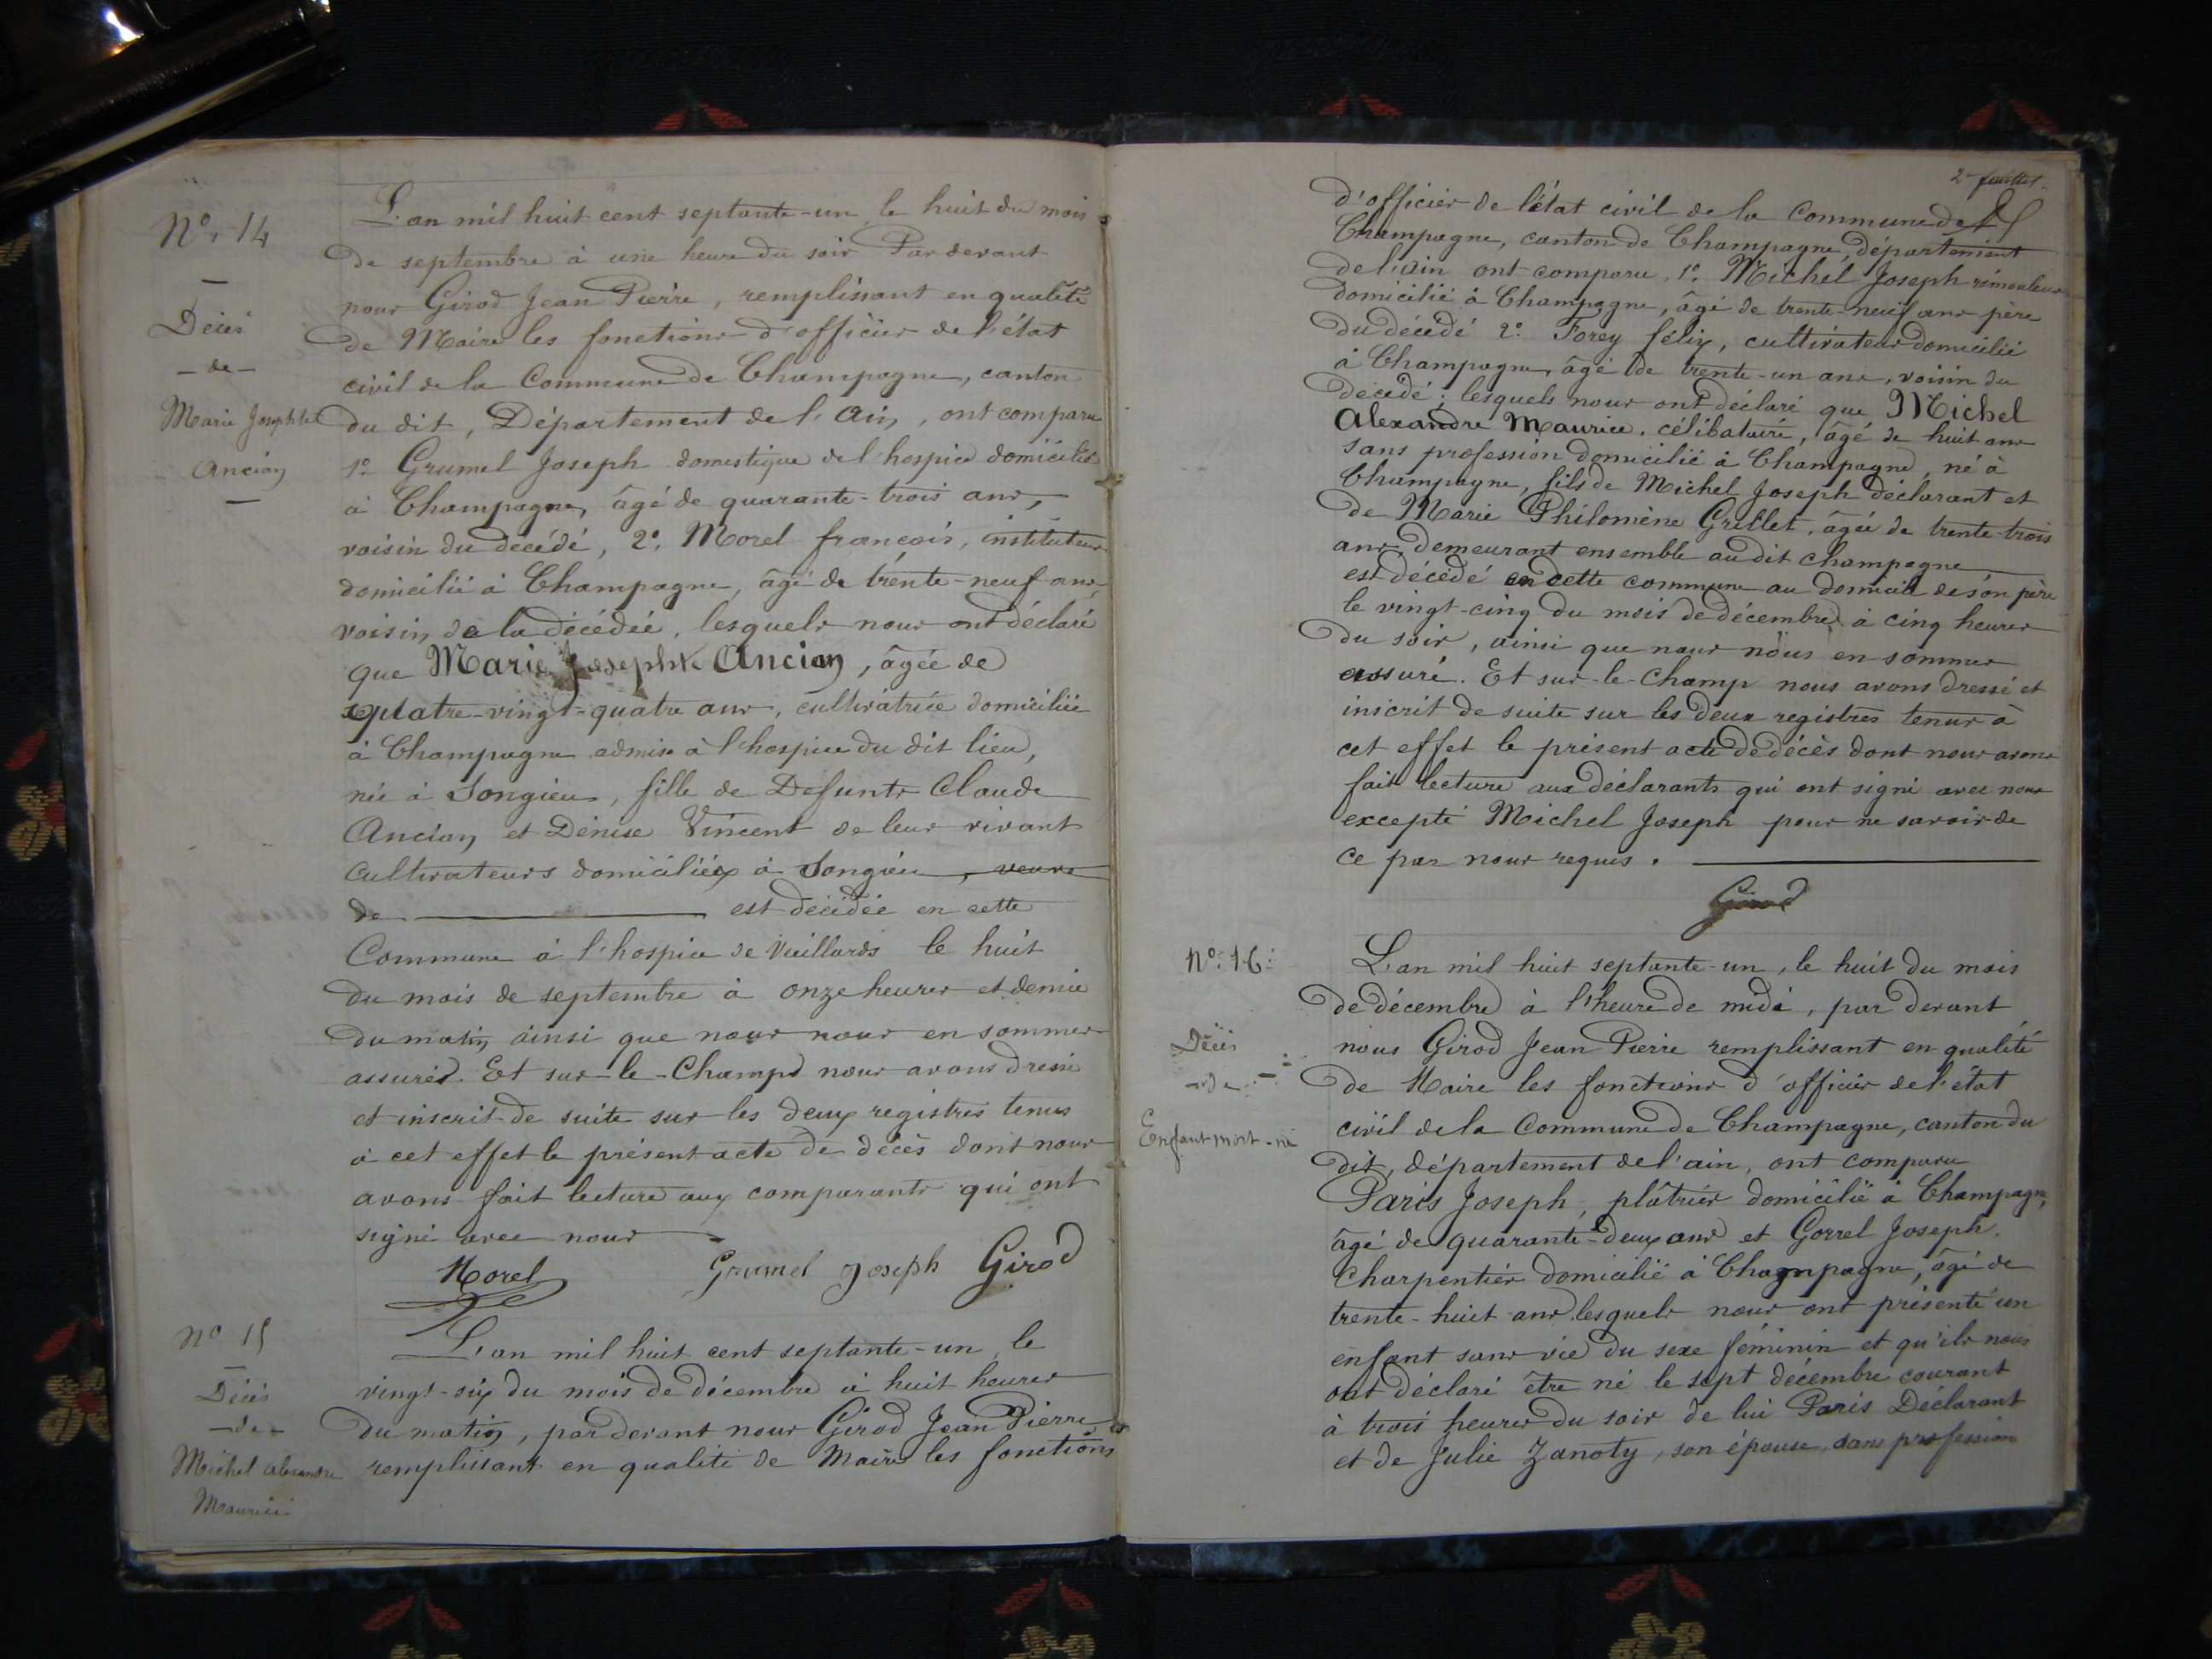 N°. 14
Décès
- de -
Marie Josephte
Ancian
L'an mil huit cent septante-un le huit du mois
de septembre à une heure du soir Par devant
nous Girod Jean Pierre, remplissant en qualité
de Maire les fonctions d'officier de l'état
civil de la Commune de Champagne, canton
du dit, Département de l'Ain, ont comparu
1° Grumel Joseph domestique de l'hospice domicilié
à Champagne, âgé de quarante-trois ans,
voisin du décédé, 2°. Morel françois, instituteur
domicilié à Champagne, âgé de trente-neuf ans,
voisin de la décédée, lesquels nous ont déclaré
que Marie Josephte Ancian, âgée de
quatre-vingt-quatre ans, cultivatrice domiciliée
à Champagne admise à l'hospice du dit lieu,
née à Songieu, fille de Defunts Claude
Ancian et Denise Vincent de leur vivant
cultivateurs domiciliés à Songieu, veuve
de est décédée en cette
Commune à l'hospice de Vieillards le huit
du mois de septembre à onze heures et demie
du matin ainsi que nous nous en sommes
assurés. Et sur-le-Champ nous avons dressé
et inscrit de suite sur les deux registres tenus
à cet effet le présent acte de décès dont nous
avons fait lecture aux comparants qui ont
signé avec nous
Morel Grumel Joseph Girod
N° 15
Décès
- de -
Michel Alexandre
Maurice
L'an mil huit cent septante-un, le
vingt-six du mois de décembre à huit heures
du matin, par devant nous Girod Jean Pierre
remplissant en qualité de Maire les fonctions
2e feuillet.
d'officier de l'état civil de la Commune de
Champagne, canton de Champagne, département
de l'ain ont comparu 1°. Michel Joseph rémouleur
domicilié à Champagne, âgé de trente-neuf ans père
du décédé 2°. Forey félix, cultivateur domicilié
à Champagne, âgé de trente-un ans, voisin du
décédé; lesquels nous ont déclaré que Michel
Alexandre Maurice, célibataire, âgé de huit ans
sans profession domicilié à Champagne, né à
Champagne, fils de Michel Joseph déclarant et
de Marie Philomène Grillet, âgée de trente-trois
ans, demeurant ensemble au dit champagne
est décédé en cette commune au domicile de son père
le vingt-cinq du mois de décembre à cinq heures
du soir, ainsi que nous nous en sommes
assuré. Et sur-le-champ nous avons dressé et
inscrit de suite sur les deux registres tenus à
cet effet le présent acte de décès dont nous avons
fait lecture aux déclarants qui ont signé avec nous
excepté Michel Joseph pour ne savoir de
ce par nous requis.
Girod
N°. 16.
Décès
- de -
Enfant mort-né
L'an mil huit septante-un, le huit du mois
de décembre à l'heure de midi, par devant
nous Girod Jean Pierre remplissant en qualité
de Maire les fonctions d'officier de l'état
civil de la Commune de Champagne, canton du
dit, département de l'ain, ont comparu
Paris Joseph, plâtrier domicilié à Champagne,
âgé de quarante-deux ans et Gorrel Joseph,
Charpentier domicilié à Champagne, âgé de
trente-huit ans lesquels nous ont présenté un
enfant sans vie du sexe féminin et qu'ils nous
ont déclaré être né le sept décembre courant
à trois heures du soir de lui Paris Déclarant
et de Julie Zanoty, son épouse, sans profession